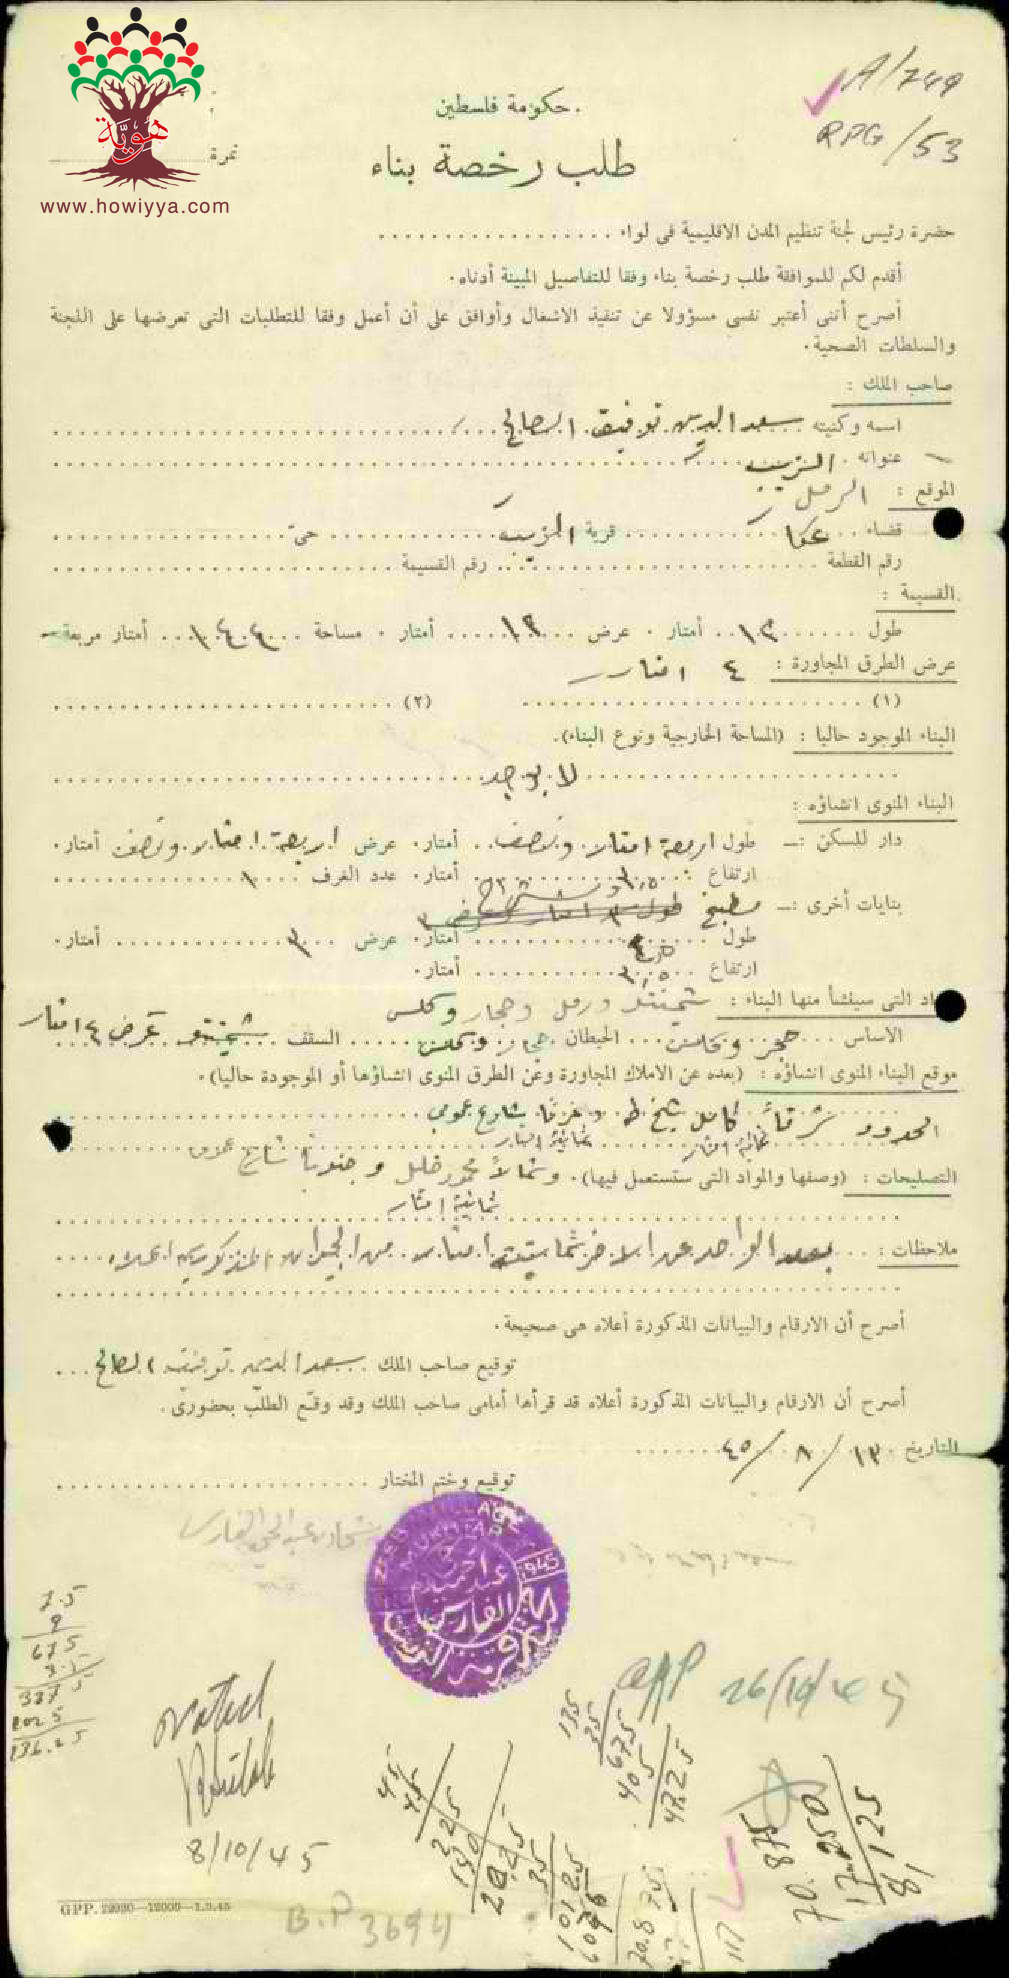 هويّة
www.howiyya.com
A/749
RPG/53
حكومة فلسطين
طلب رخصة بناء
نمرة
حضرة رئيس لجنة تنظيم المدن الاقليمية فى لواء
أقدم لكم للموافقة طلب رخصة بناء وفقا للتفاصيل المبينة أدناه.
أصرح أننى أعتبر نفسى مسؤولا عن تنفيذ الاشغال وأوافق على أن أعمل وفقا للمتطلبات التى تعرضها على اللجنة
والسلطات الصحية.
صاحب الملك :
اسمه وكنيته سعد الدين توفيق الصالح
عنوانه الزيب
الموقع : الرمل
قضاء عكا قرية الزيب حى
رقم القطعة رقم القسيمة
القسيمة :
طول ١٢ أمتار . عرض ١٢ أمتار . مساحة ١٤٤ أمتار مربعة
عرض الطرق المجاورة : ٤ امتار
(١) (٢)
البناء الموجود حاليا : (المساحة الخارجية ونوع البناء).
لا يوجد
البناء المنوى انشاؤه :
دار للسكن :ـ طول اربعة امتار ونصف أمتار. عرض اربعة امتار ونصف أمتار.
ارتفاع ٣,٥ أمتار. عدد الغرف ١
بنايات أخرى :ـ مطبخ طول ٣ امتار عرض ٣
طول ٤,٥ أمتار. عرض ٣ أمتار.
ارتفاع ٣,٥ أمتار.
واد التى سينشأ منها البناء : شمنتو ورمل وحجار وكلس
الاساس حجر وكلس الحيطان حجار وكلس السقف شمنتو عرض ٤ امتار
موقع البناء المنوى انشاؤه : (بعده عن الاملاك المجاورة وعن الطرق المنوى انشاؤها أو الموجودة حاليا).
الحدود شرقاً كامل شيخ طه وغربا شارع عمومي
ثمانية امتار ثمانية امتار
التصليحات : (وصفها والمواد التى ستستعمل فيها). وشمالاً محمود خليل وجنوبا شارع عمومي
ثمانية امتار
ملاحظات : بعد الواحد عن الاخر ثمانية امتار من الجيران المذكورين اعلاه
أصرح أن الارقام والبيانات المذكورة أعلاه هى صحيحة.
توقيع صاحب الملك سعد الدين توفيق الصالح
أصرح أن الارقام والبيانات المذكورة أعلاه قد قرأها أمامى صاحب الملك وقد وقّع الطلب بحضورى.
التاريخ ١٣/٨/٤٥
توقيع وختم المختار
ZEEB VILLAGE
MUKHTAR
1945
الفارس
مختار قرية الزيب
7.5
9
67.5
app 26/10/45
Noted
8/10/45
GPP. 22020—12000—1.3.45
B.P 3694